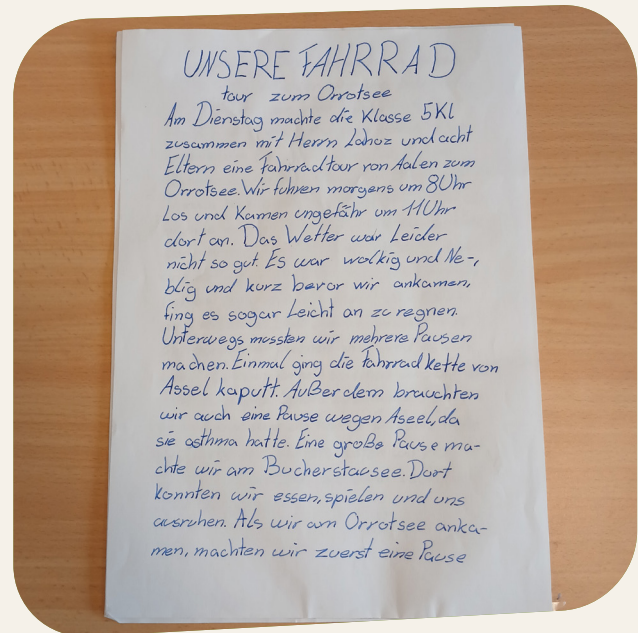 UNSERE FAHRRAD
tour zum Orrotsee
Am Dienstag machte die Klasse 5Kl
zusammen mit Herrn Lahoz und acht
Eltern eine Fahrradtour von Aalen zum
Orrotsee. Wir fuhren morgens um 8Uhr
Los und Kamen ungefähr um 11Uhr
dort an. Das Wetter war Leider
nicht so gut. Es war wolkig und Ne-,
blig und kurz bevor wir ankamen,
fing es sogar Leicht an zu regnen.
Unterwegs mussten wir mehrere Pausen
machen. Einmal ging die Fahrradkette von
Assel kaputt. Außerdem brauchten
wir auch eine Pause wegen Aseel, da
sie asthma hatte. Eine große Pause ma-
chte wir am Bucherstausee. Dort
konnten wir essen, spielen und uns
ausruhen. Als wir am Orrotsee anka-
men, machten wir zuerst eine Pause